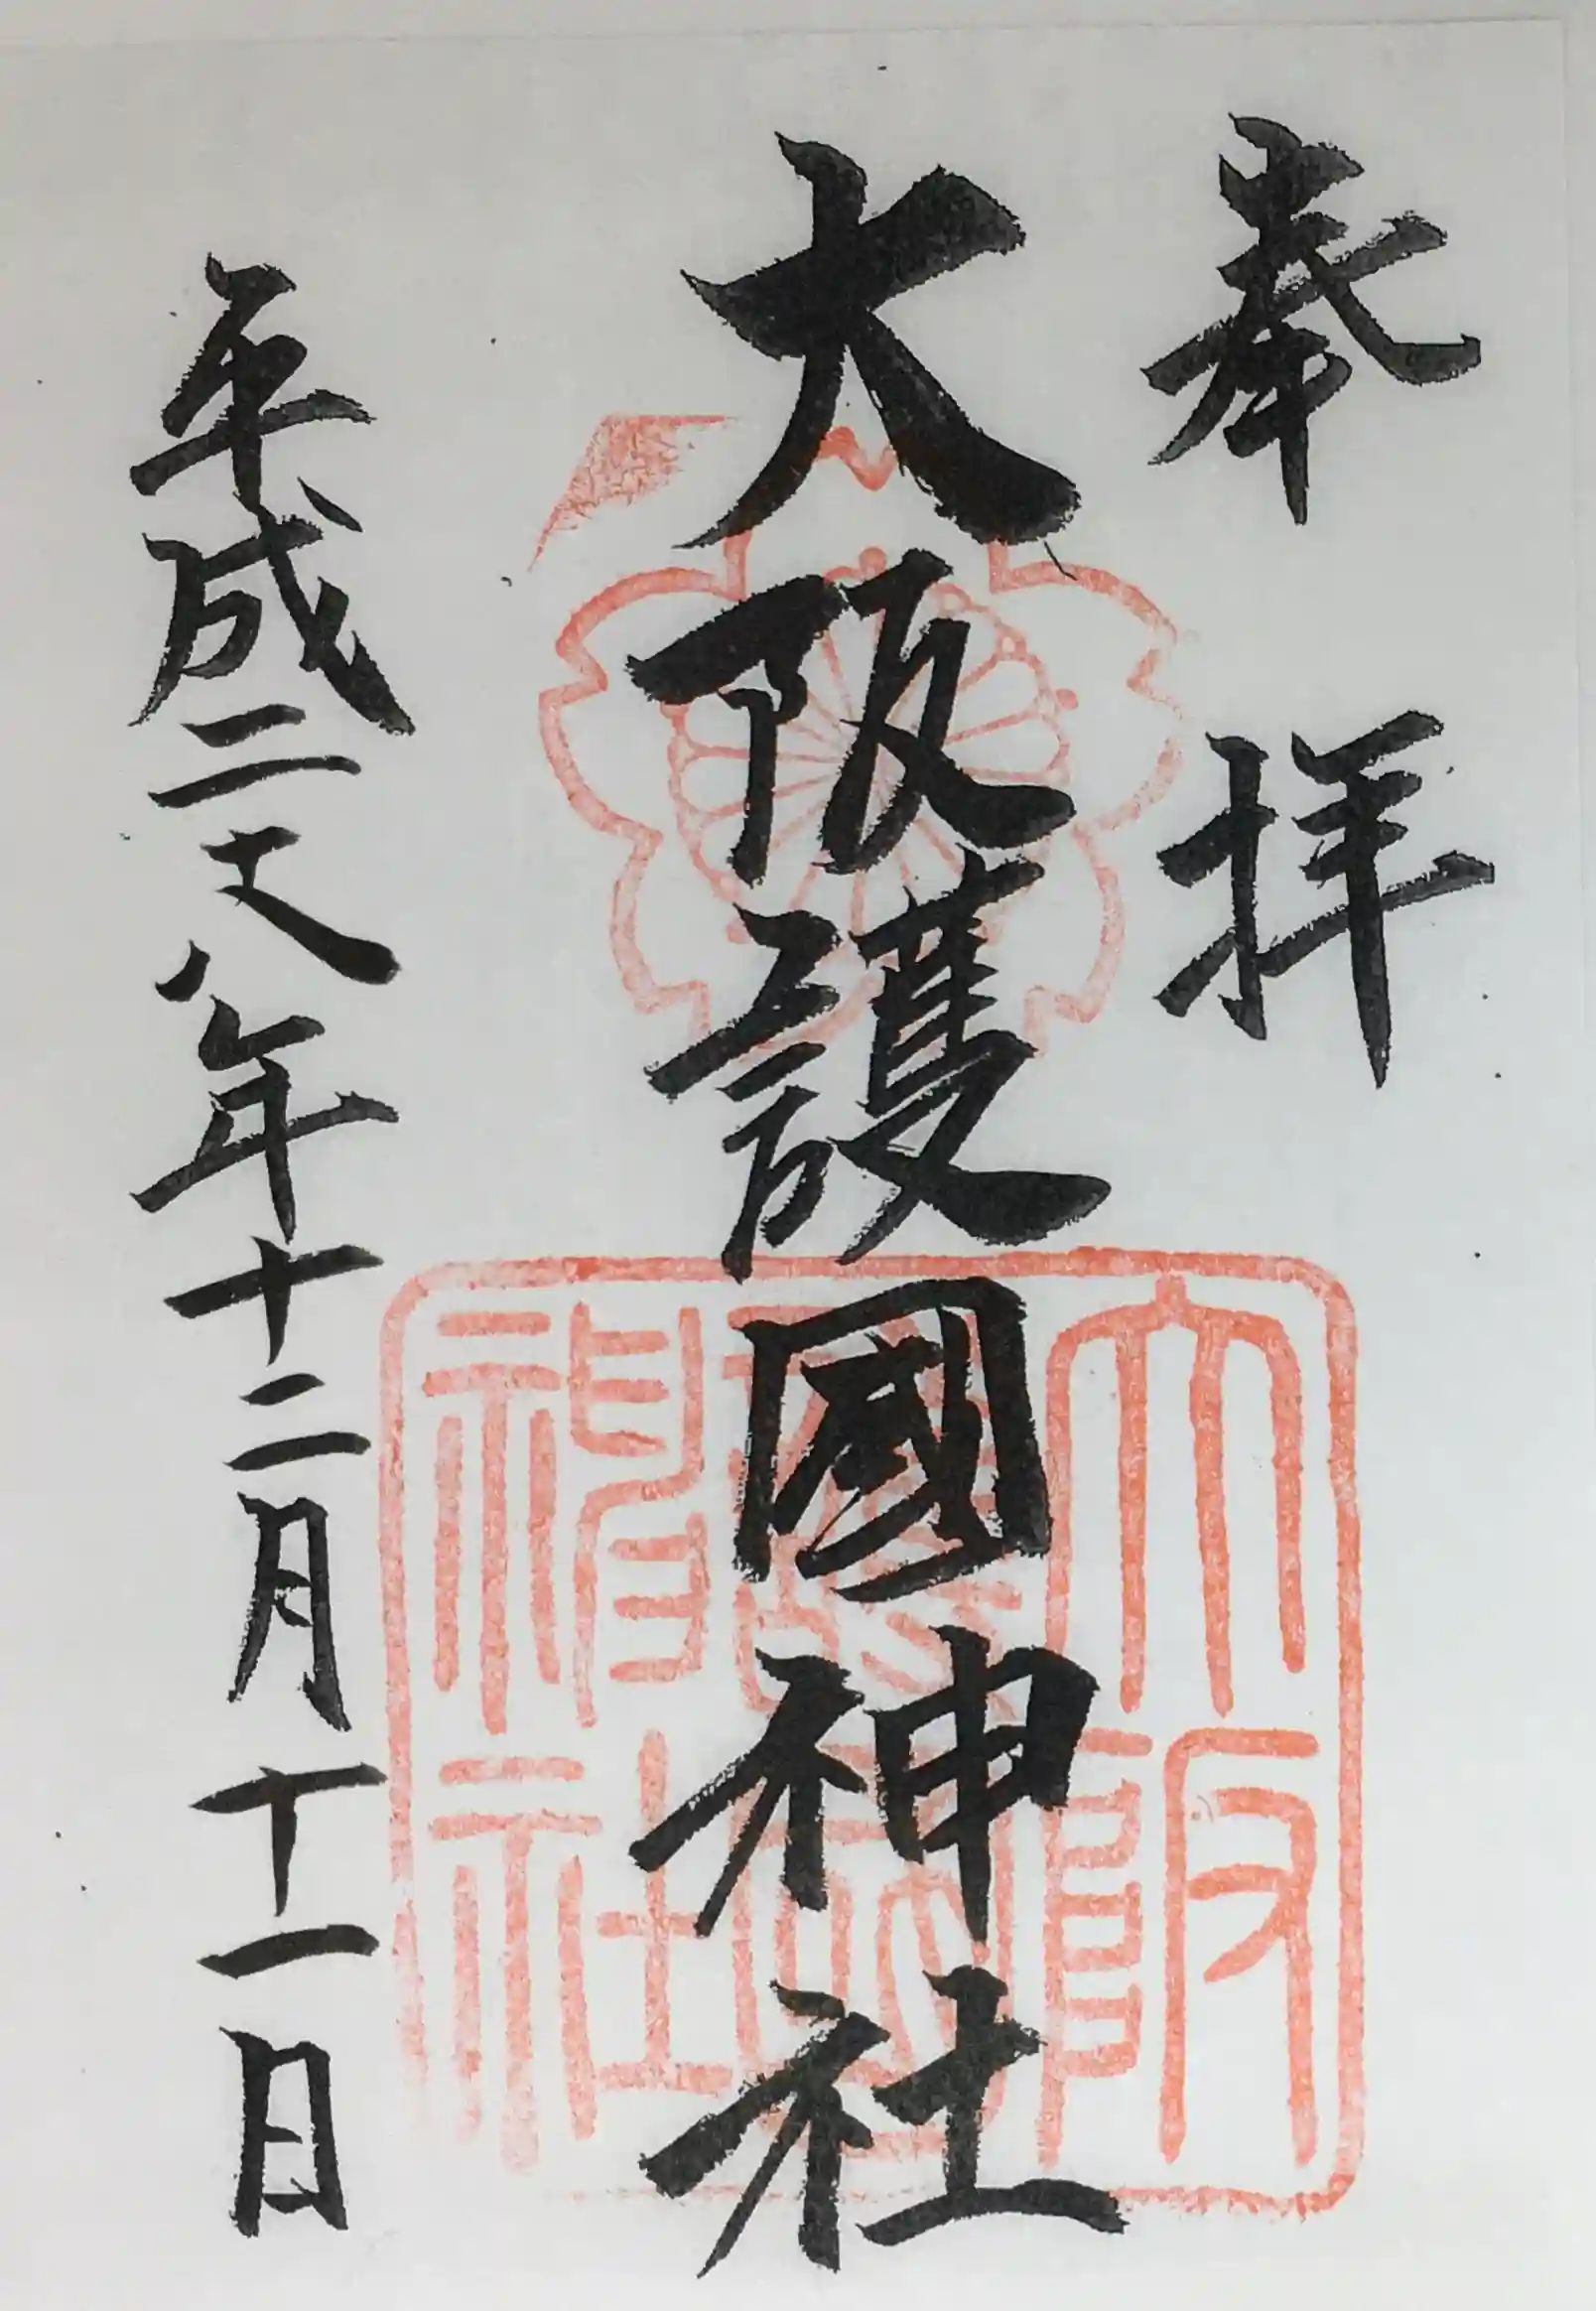 奉拝
大阪護國神社
平成二十八年十二月十一日
大阪
神社